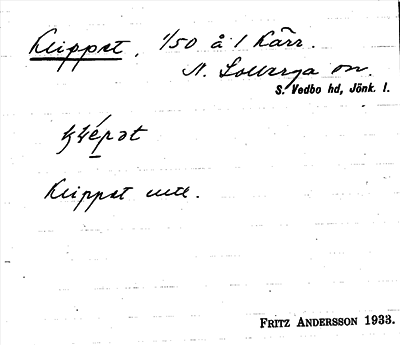 Klippet, 1/50 å 1 Kärr.
N. Solberga sn.
S. Vedbo hd, Jönk. l.
Klippet
FRITZ ANDERSSON 1933.